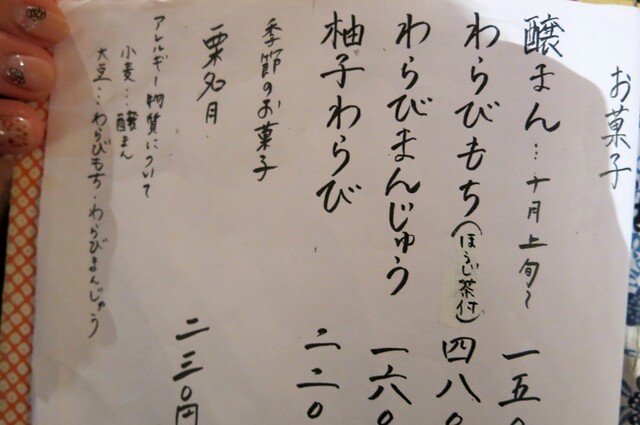 お菓子
醸まん…十月上旬〜 一五〇
わらびもち(ほうじ茶付) 四八〇
わらびまんじゅう 一六〇
柚子わらび 二二〇
季節のお菓子
栗名月 二三〇円
アレルギー物質について
小麦…醸まん
大豆…わらびもち・わらびまんじゅう